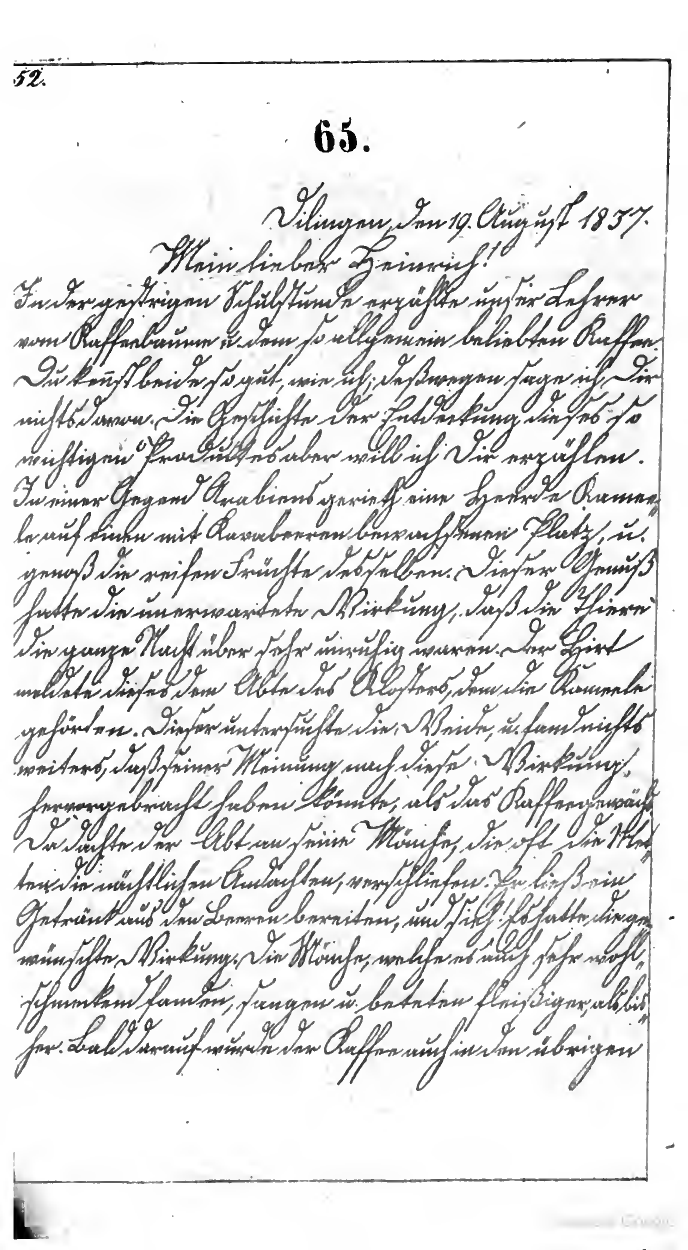 52.
65.
Dilingen, den 19. August 1837.
Mein lieber Heinrich!
In der gestrigen Schulstunde erzählte unser Lehrer
vom Kaffeebaume u. dem so allgemein beliebten Kaffee.
Du keñst beide so gut, wie ich; deßwegen sage ich Dir
nichts davon. Die Geschichte der Entdeckung dieses so
wichtigen Produktes aber will ich Dir erzählen.
In einer Gegend Arabiens gerieth eine Heerde Kamee-
le auf einen mit beeren bewachsenen Platz, u.
genoß die reifen Früchte desselben. Dieser Genuß
hatte die unerwartete Wirkung, daß die Thiere
die ganze Nacht über sehr unruhig waren. Der Hirt
meldete dieses dem Abte des Klosters, dem die Kameele
gehörten. Dieser untersuchte die Weide, u. fand nichts
weiters, daß seiner Meinung nach diese Wirkung
hervorgebracht haben könnte, als das Kaffeegewächs.
Da dachte der Abt an seine Mönche, die oft die Met-
ten, die nächtlichen Andachten, verschliefen. Er ließ ein
Getränk aus den Beeren bereiten, und sieh! Es hatte die ge-
wünschte Wirkung. Die Mönche, welche es auch sehr wohl-
schmeckend fanden, sangen u. beteten fleißiger, als bis-
her. Bald darauf wurde der Kaffee auch in den übrigen
Google